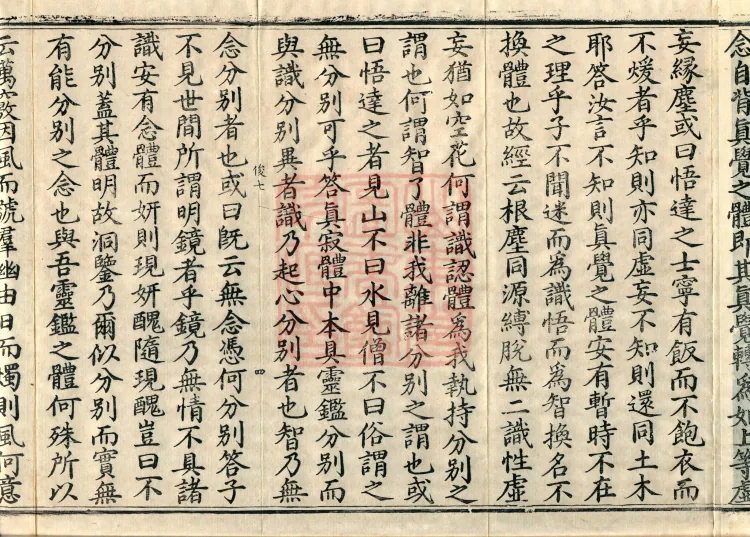 念自背眞覺之體即其眞覺轉爲如上等虛
妄緣塵或曰悟達之士寧有飯而不飽衣而
不煖者乎知則亦同虛妄不知則還同土木
耶答汝言不知則眞覺之體安有暫時不在
之理乎子不聞迷而爲識悟而爲智換名不
換體也故經云根塵同源縛脫無二識性虛
妄猶如空花何謂識認體爲我執持分別之
謂也何謂智了體非我離諸分別之謂也或
曰悟達之者見山不曰水見僧不曰俗謂之
無分別可乎答眞寂體中本具靈鑑分別而
與識分別異者識乃起心分別者也智乃無
俊七
四
念分別者也或曰旣云無念憑何分別答子
不見世間所謂明鏡者乎鏡乃無情不具諸
識安有念體而妍則現妍醜隨現醜豈曰不
分別蓋其體明故洞鑒乃爾似分別而實無
有能分別之念也與吾靈鑑之體何殊所以
云萬竅因風而號羣幽由日而燭則風何意